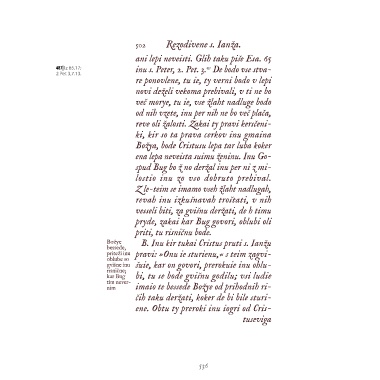 502 Rezodivene s. Ianža.
ani lepi neveisti. Glih taku piše Esa. 65
inu s. Peter, 2. Pet. 3. De bodo vse stva-
re ponovlene, tu ie, ty verni bodo v lepi
novi deželi vekoma prebivali, v ti ne bo
več morye, tu ie, vse žlaht nadluge bodo
od nih vzete, inu per nih ne bo več plača,
reve oli žalosti. Zakai ty pravi kerščeni-
ki, kir so ta prava cerkov inu gmaina
Božya, bode Cristusu lepa tar luba koker
ena lepa neveista suimu ženinu. Inu Go-
spud Bug bo ž no deržal inu per ni z mi-
lostio inu zo vso dobruto prebival.
Z le-teim se imamo vseh žlaht nadlugah,
revah inu izkušnavah troštati, v nih
vesseli biti, za gvišnu deržati, de h timu
pryde, zakai kar Bug govori, oblubi oli
priti, tu risničnu bode.
B. Inu kir tukai Cristus pruti s. Ianžu
pravi: »Onu ie sturienu,« s teim zagvi-
šuie, kar on govori, prerokuie inu oblu-
bi, tu se bode gvišnu godilu; vsi ludie
imaio te bessede Božye od prihodnih ri-
čih taku deržati, koker de bi bile sturi-
ene. Obtu ty preroki inu iogri od Cris-
tuseviga
Ezj: 65,17;
2 Pet 3,7.13.
Božye
bessede,
pričeči inu
oblube so
gvišne inu
risnične,
kar Bug
tim never-
nim
536